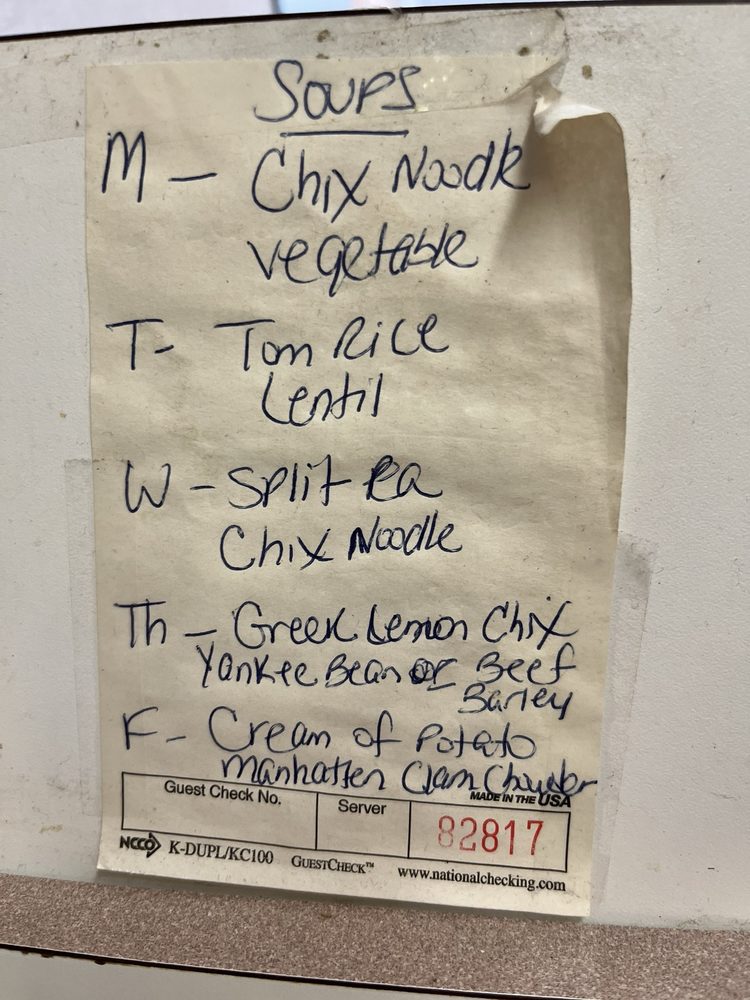 Soups
M - Chix Noodle
vegetable
T- Tom Rice
Lentil
W - Split Pea
Chix Noodle
Th - Greek Lemon Chix
Yankee Bean or Beef
Barley
F- Cream of Potato
Manhatten Clam Chowder
MADE IN THE USA
Guest Check No. Server 82817
NCCO K-DUPL/KC100 GUESTCHECK™ www.nationalchecking.com